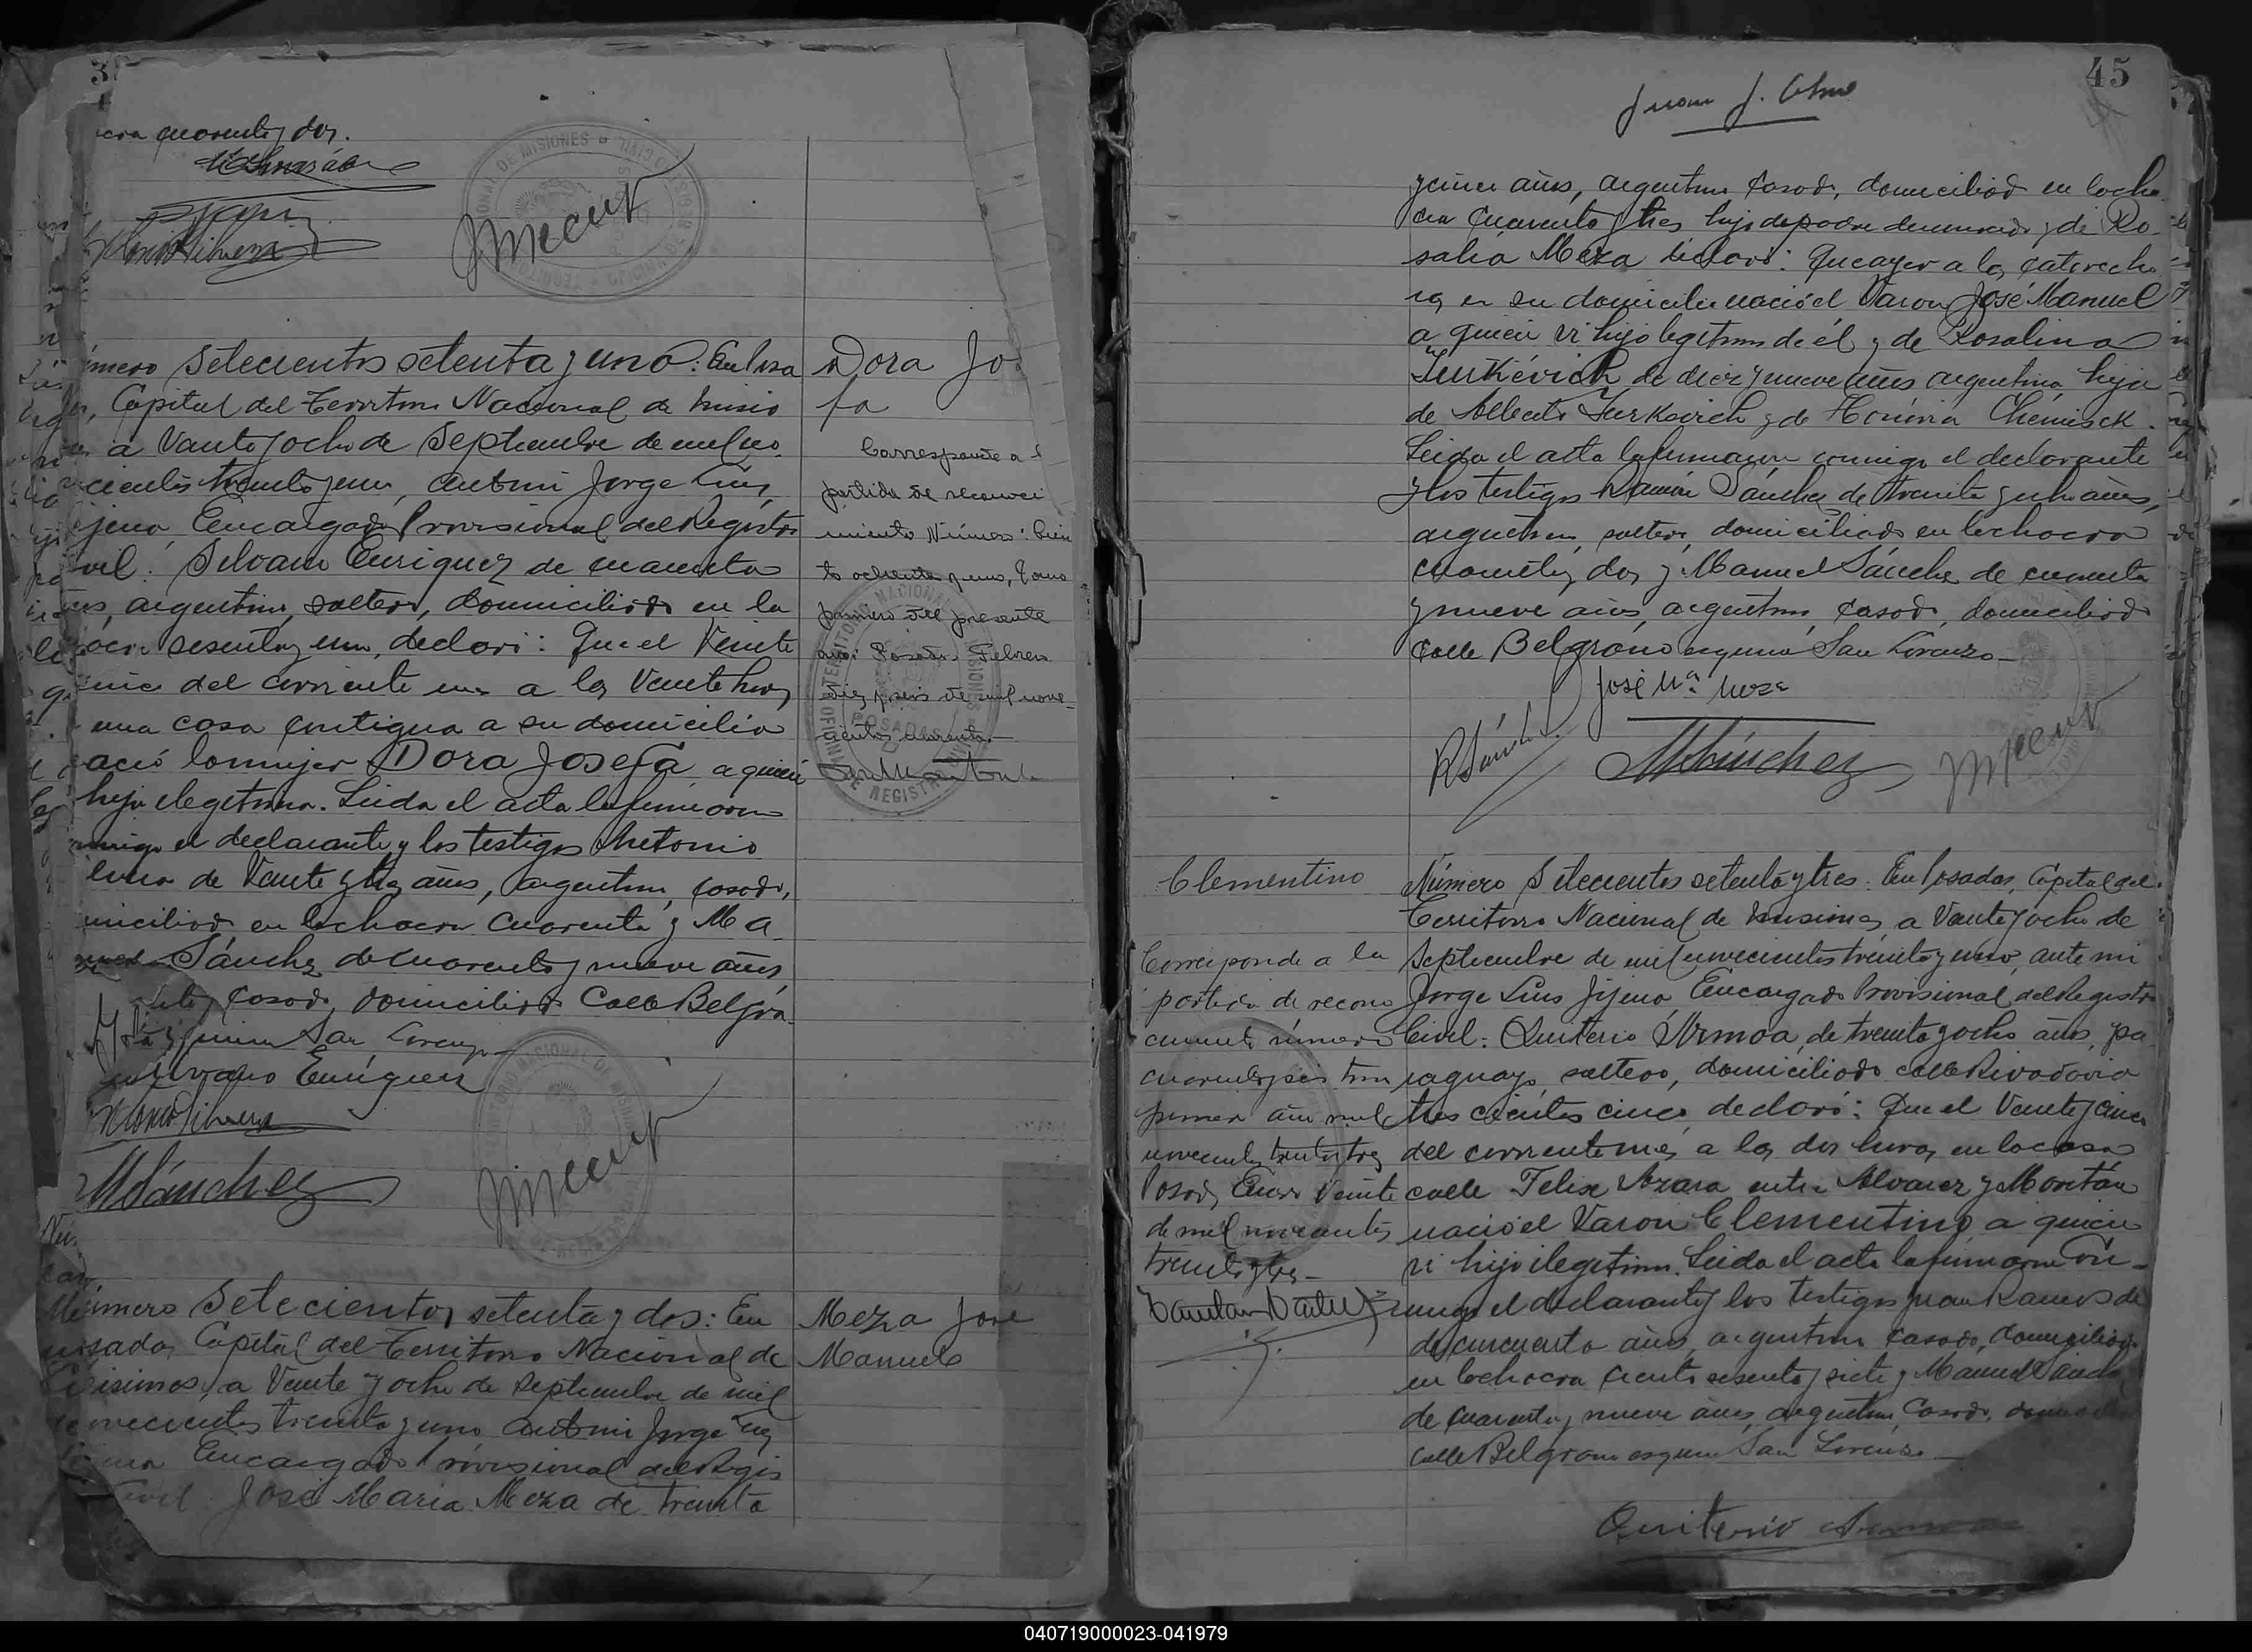 cra cuarenta y dos.
TERRITORIO NACIONAL DE MISIONES
Número Setecientos setenta y uno: En Posa
das, Capital del Territorio Nacional de Misio
nes a Veinte y ocho de Septiembre de mil no
vecientos treinta y uno, ante mi Jorge Luis
Jijena, Encargado Provisional del Registro
Civil: Silvano Enriquez de cuarenta
años, argentino, soltero, domiciliado en la
chacra sesenta y uno, declaró: Que el Veinte
del corriente mes a las Veinte horas
en una casa contigua a su domicilio
nació la mujer Dora Josefa a quien
hija ilegitima. Leida el acta la firmaron
conmigo el declarante y los testigos Antonio
de Veinte y tres años, argentino, casado,
domiciliado en la chacra cuarenta y Ma
nuel Sánchez de cuarenta y nueve años,
casado, domiciliado Calle Belgra
no esquina San Lorenzo
Silvano Enriquez
MSánchez
Dora Jo
fa
Corresponde a l
partida de reconoci
miento Número: Cien
to ochenta y uno, Tomo
primero del presente
año: Posadas Febrero
diez y seis de mil nove-
cientos cuarenta.-
Número Setecientos setenta y dos: En
Posadas Capital del Territorio Nacional de
Misiones, a Veinte y ocho de Septiembre de mil
novecientos treinta y uno ante mi Jorge Luis
Jijena Encargado Provisional del Regis
tro Civil José Maria Meza de treinta
Meza José
Manuel
45
Juan J.
y cinco años, argentino casado, domiciliado en la cha
cra cuarenta y tres hijo de padre denunciado y de Ro-
salia Meza declaró: Que ayer a las catorce ho
ras en su domicilio nació el Varon José Manuel
a quien vi hijo legitimo de él y de Rosalina
Jurkévich de diez y nueve años argentina, hija
de Alberto Jurkevich y de Honoria Chemisck.
Leida el acta la firmaron conmigo el declarante
y los testigos Ramón Sánchez de treinta y ocho años,
argentino, soltero, domiciliado en la chacra
cuarenta y dos y Manuel Sánchez de cuarenta
y nueve años, argentino, casado, domiciliado
calle Belgrano esquina San Lorenzo-
José Ma. Meza
RSánchez
MSánchez
Clementino
Corresponde a la
partida de recono
cimiento número
cuarenta y seis tomo
primero año mil
novecientos treinta y tres
Posadas, Enero Veinte
de mil novecientos
treinta y tres-
Número Setecientos setenta y tres: En Posadas, Capital del
Territorio Nacional de Misiones a Veinte y ocho de
Septiembre de mil novecientos treinta y uno, ante mi
Jorge Luis Jijena, Encargado Provisional del Registro
Civil: Quiterio Armoa, de treinta y ocho años, pa
raguayo, soltero, domiciliado calle Rivadavia
tres cientos cinco, declaró: Que el Veinte y cinco
del corriente mes, a las dos horas, en la casa
calle Felix Azara entre Alvarez y Moritán
nació el Varon Clementino, a quien
vi hijo ilegitimo. Leida el acta la firmaron con-
migo el declarante y los testigos Juan Ramos de
de cincuenta años, argentino casado, domiciliado
en la chacra ciento sesenta y siete y Manuel Sánchez
de cuarenta y nueve años, argentino casado, domiciliado
calle Belgrano esquina San Lorenzo.-
Quiterio Armoa
040719000023-041979